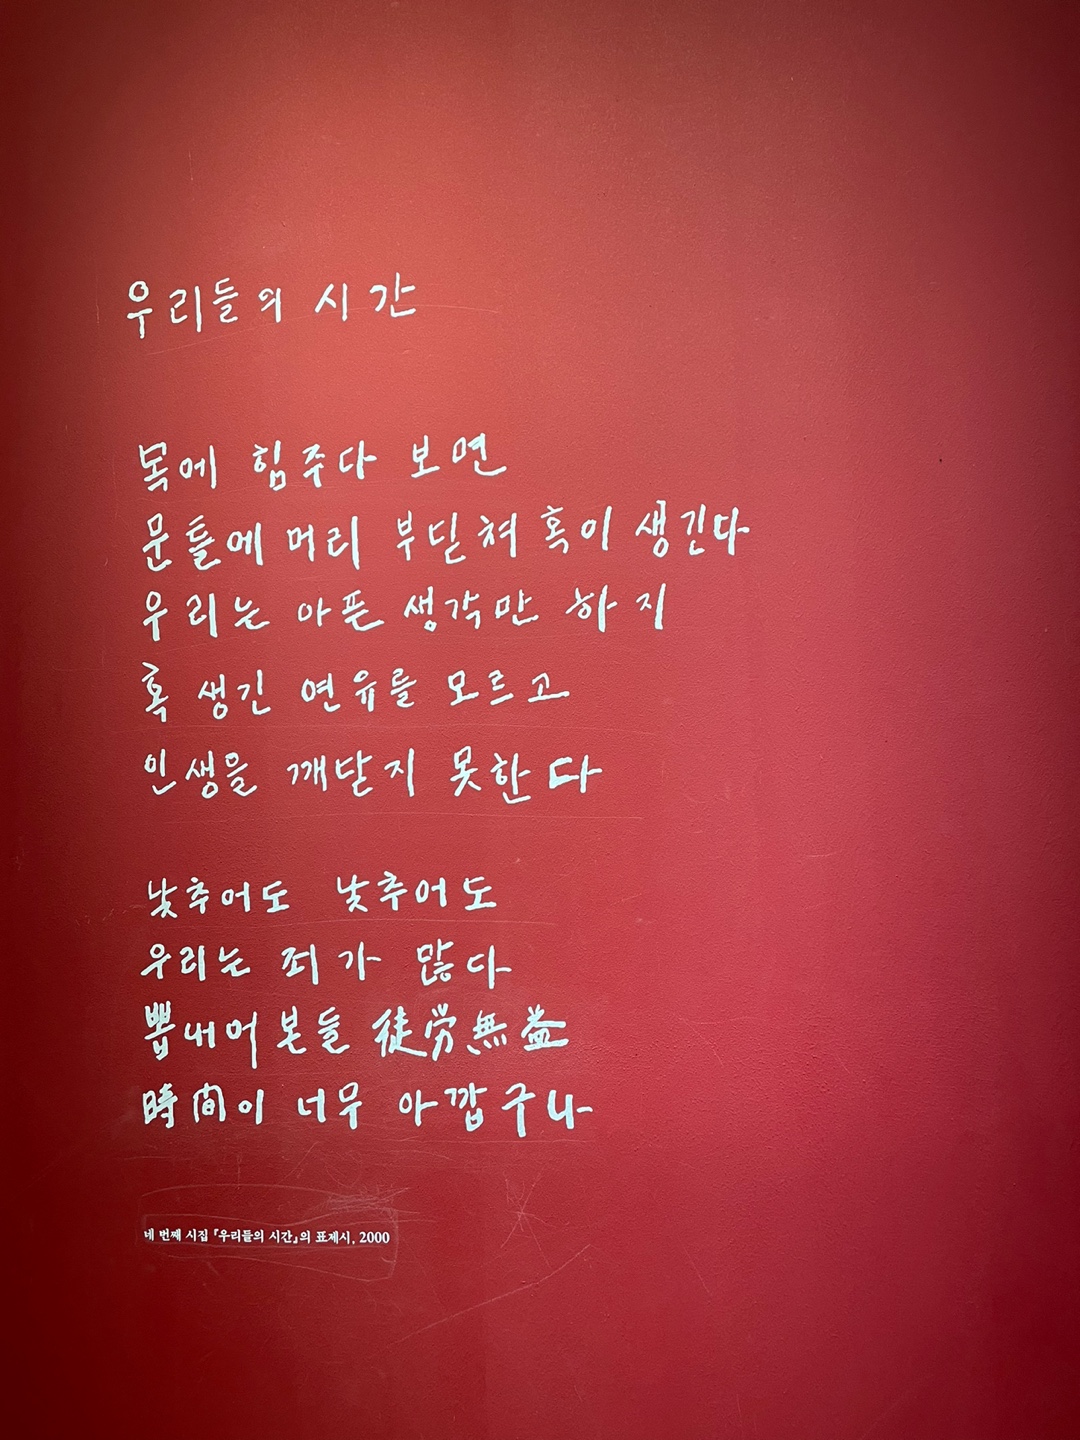 우리들의 시간
목에 힘주다 보면
문틀에 머리 부딛쳐 혹이 생긴다
우리는 아픈 생각만 하지
혹 생긴 연유를 모르고
인생을 깨닫지 못한다
낮추어도 낮추어도
우리는 죄가 많다
뽑내어 본들 徒労無益
時間이 너무 아깝구나
네 번째 시집 『우리들의 시간』의 표제시, 2000